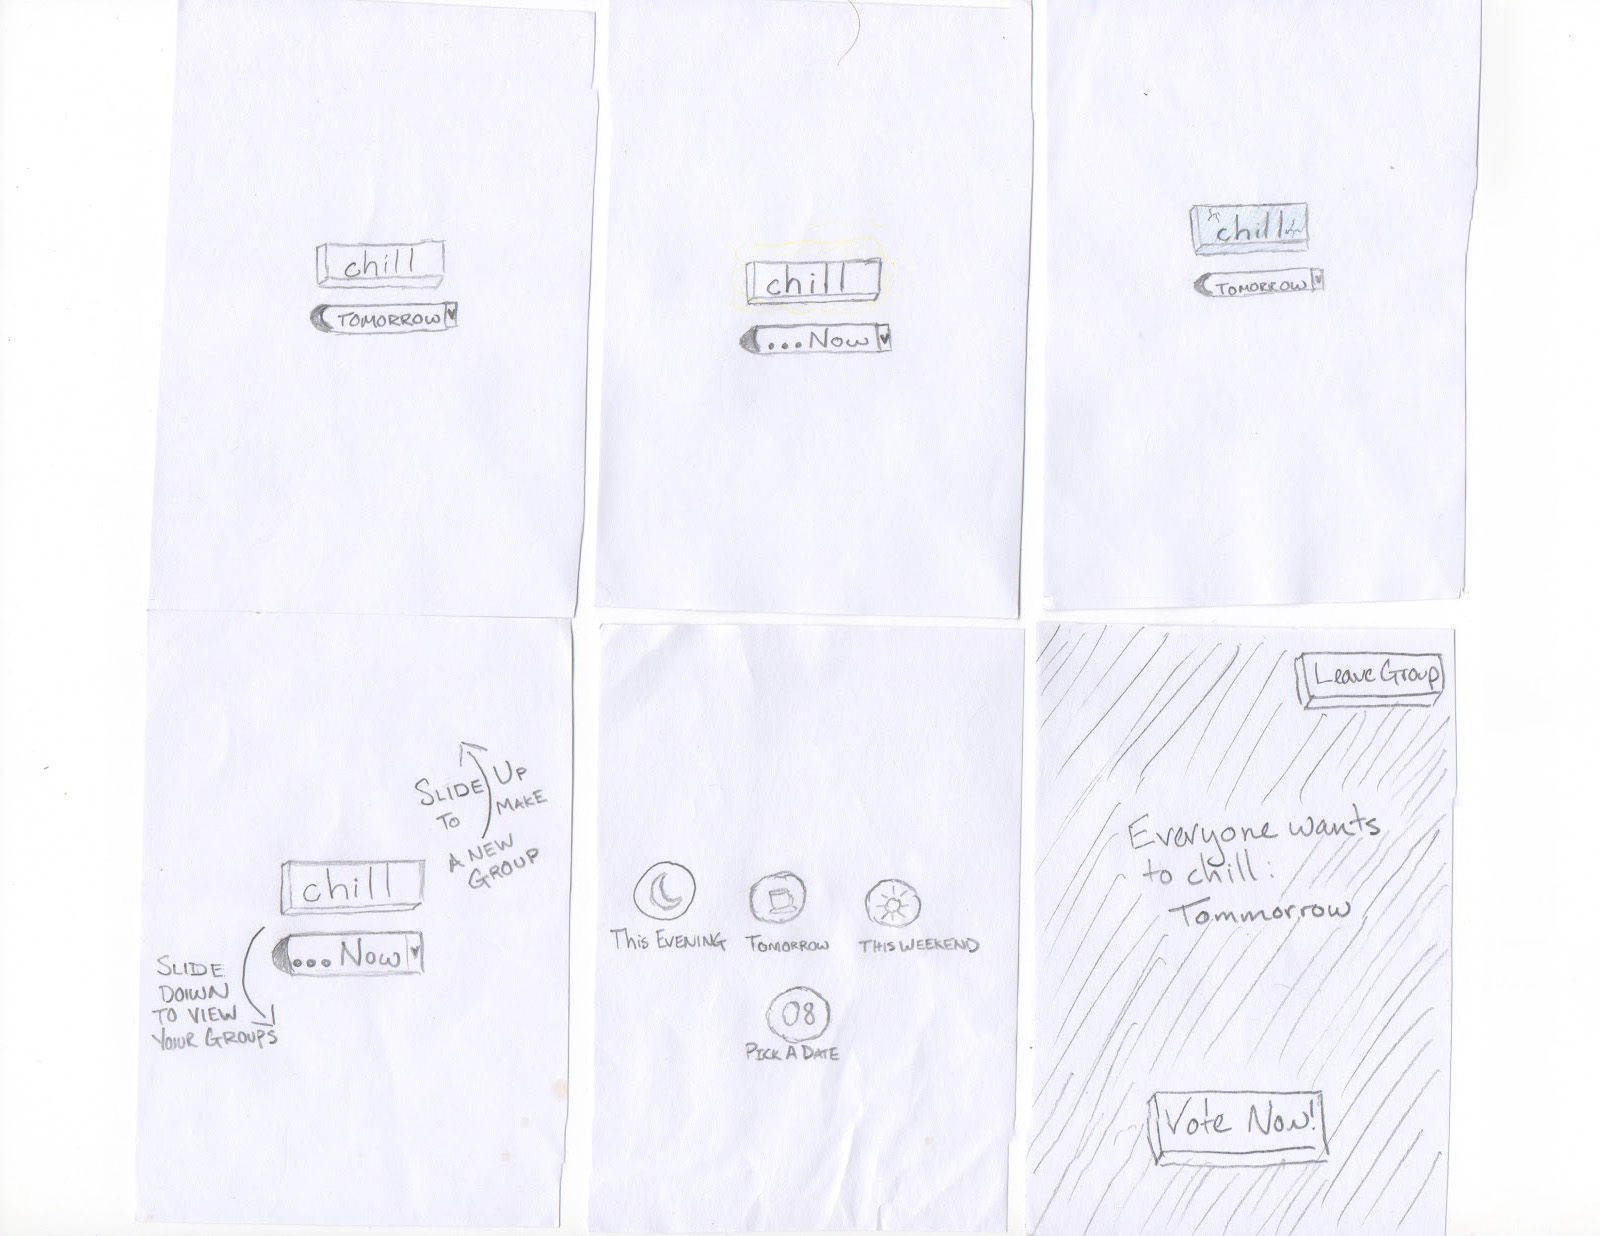 chill
TOMORROW
chill
...Now
chill
TOMORROW
SLIDE UP
TO MAKE
A NEW
GROUP
chill
...Now
SLIDE
DOIWN
TO VIEW
YOUR GROUPS
This EVENING
TOMORROW
THIS WEEKEND
08
PICK A DATE
Leave Group
Everyone wants
to chill:
Tommorrow
Vote Now!